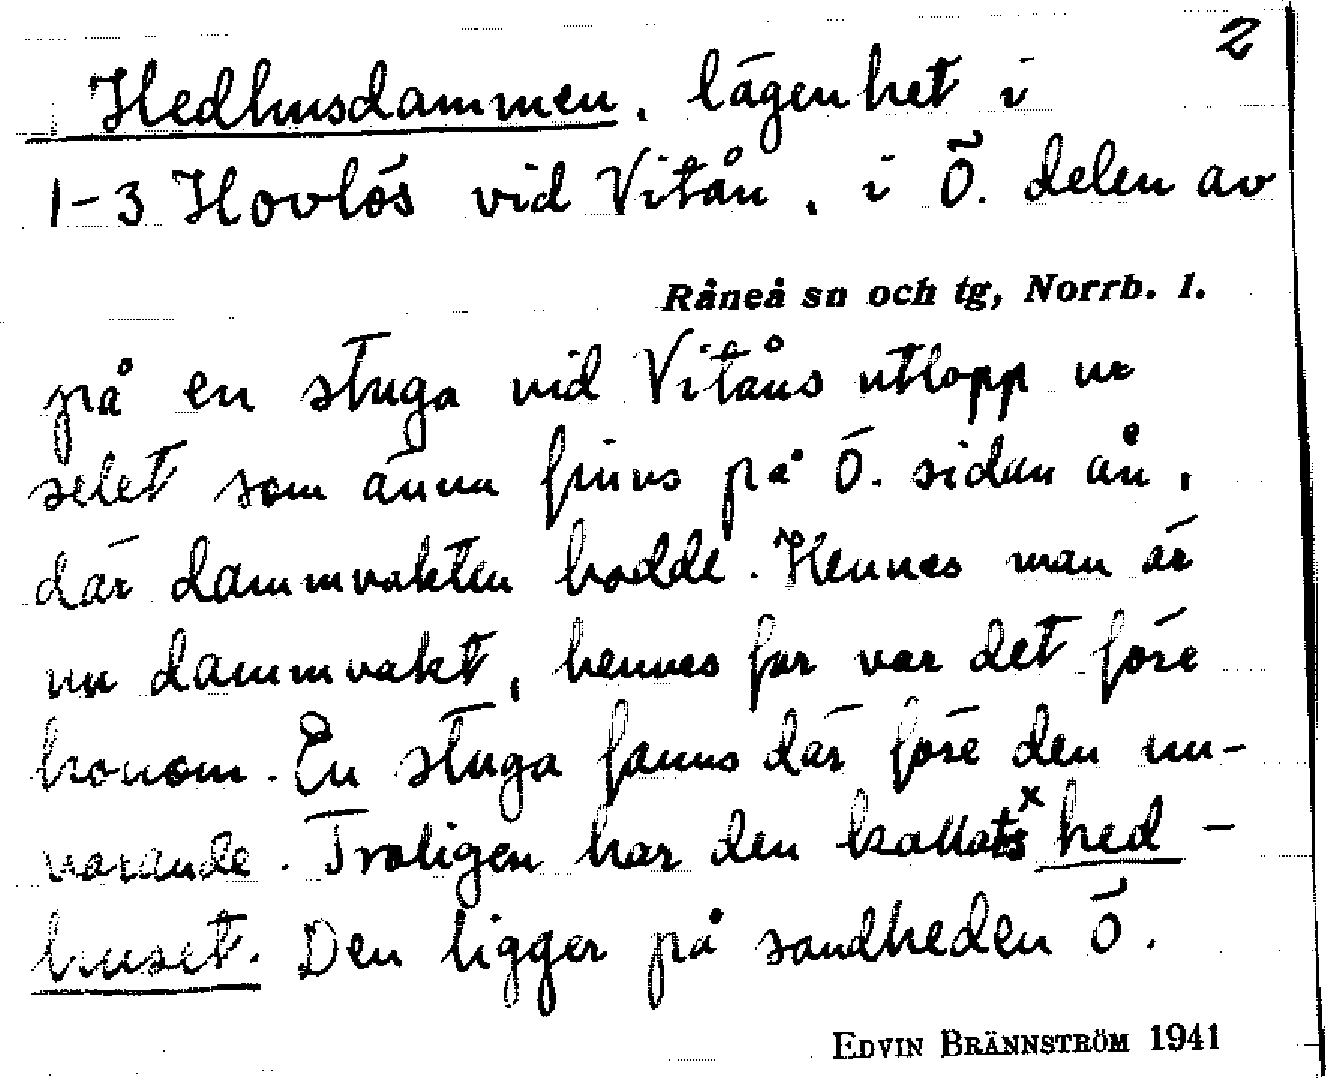 2
Hedhusdammen, lägenhet i
1-3 Hovlös vid Vitån, i Ö. delen av
Råneå sn och tg, Norrb. l.
på en stuga vid Vitåns utlopp ur
selet som ännu finns på Ö. sidan ån,
där dammvakten bodde. Hennes man är
nu dammvakt, hennes far var det före
honom. En stuga fanns där före den nu-
varande. Troligen har den kallats x hed-
huset. Den ligger på sandheden Ö.
EDVIN BRÄNNSTRÖM 1941